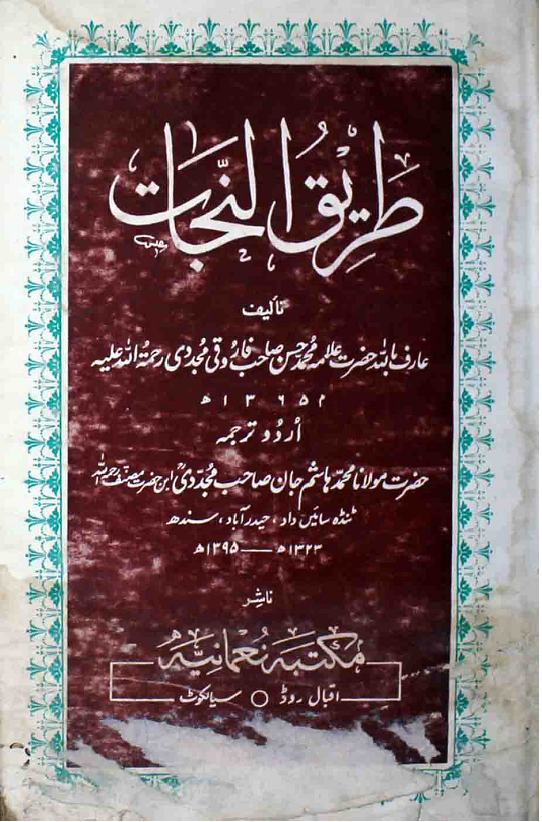 طَرِیقُ النَّجَات
تألیف
عارف باللہ حضرت علامہ محمد حسن صاحب فاروقی مجددی رحمۃ اللہ علیہ
م ۱۳۶۵ ھ
اُردُو ترجمہ
حضرت مولانا محمد ہاشم جان صاحب مُجدّدی ابن حضرت مصنف رحمہ اللہ
ٹنڈہ سائیں داد، حیدرآباد، سندھ
۱۳۲۳ھ — ۱۳۹۵ھ
ناشِر
مکتبہ نُعمانیَّہ
اقبال روڈ ○ سیالکوٹ